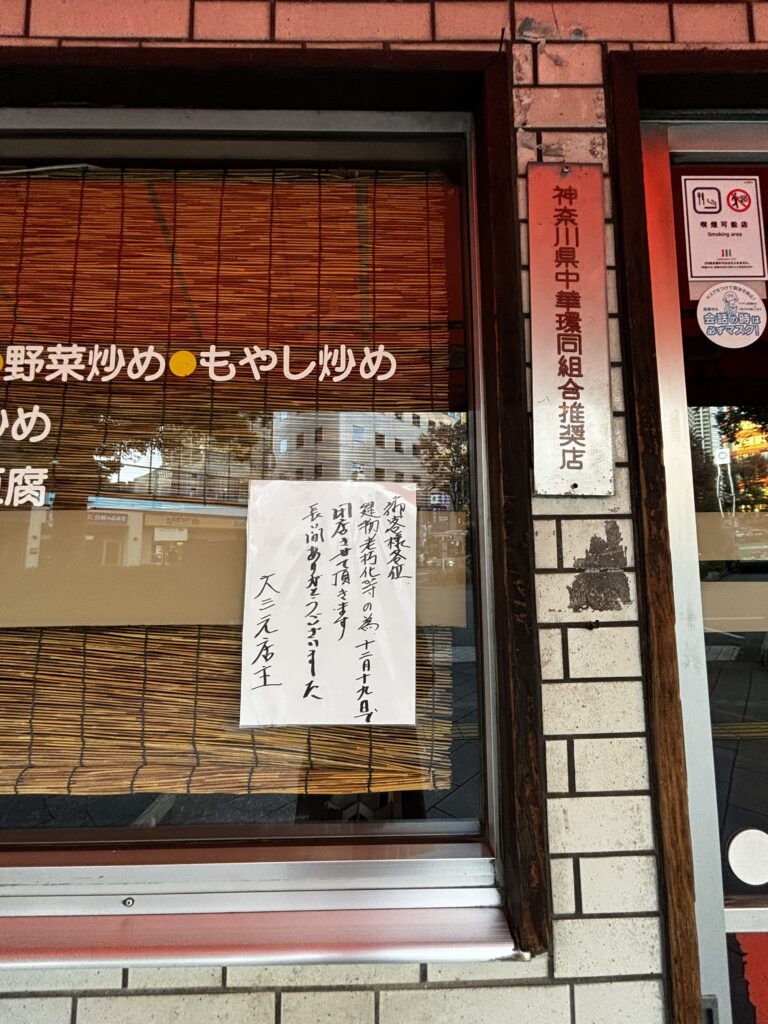 野菜炒め●もやし炒め
炒め
豆腐
御客様各位
建物老朽化等の為 十二月十九日で
閉店させて頂きます
長い間ありがとうございました
大三元店主
神奈川県中華環同組合推奨店
喫煙可能店
Smoking area
会話の時は
必ずマスク!